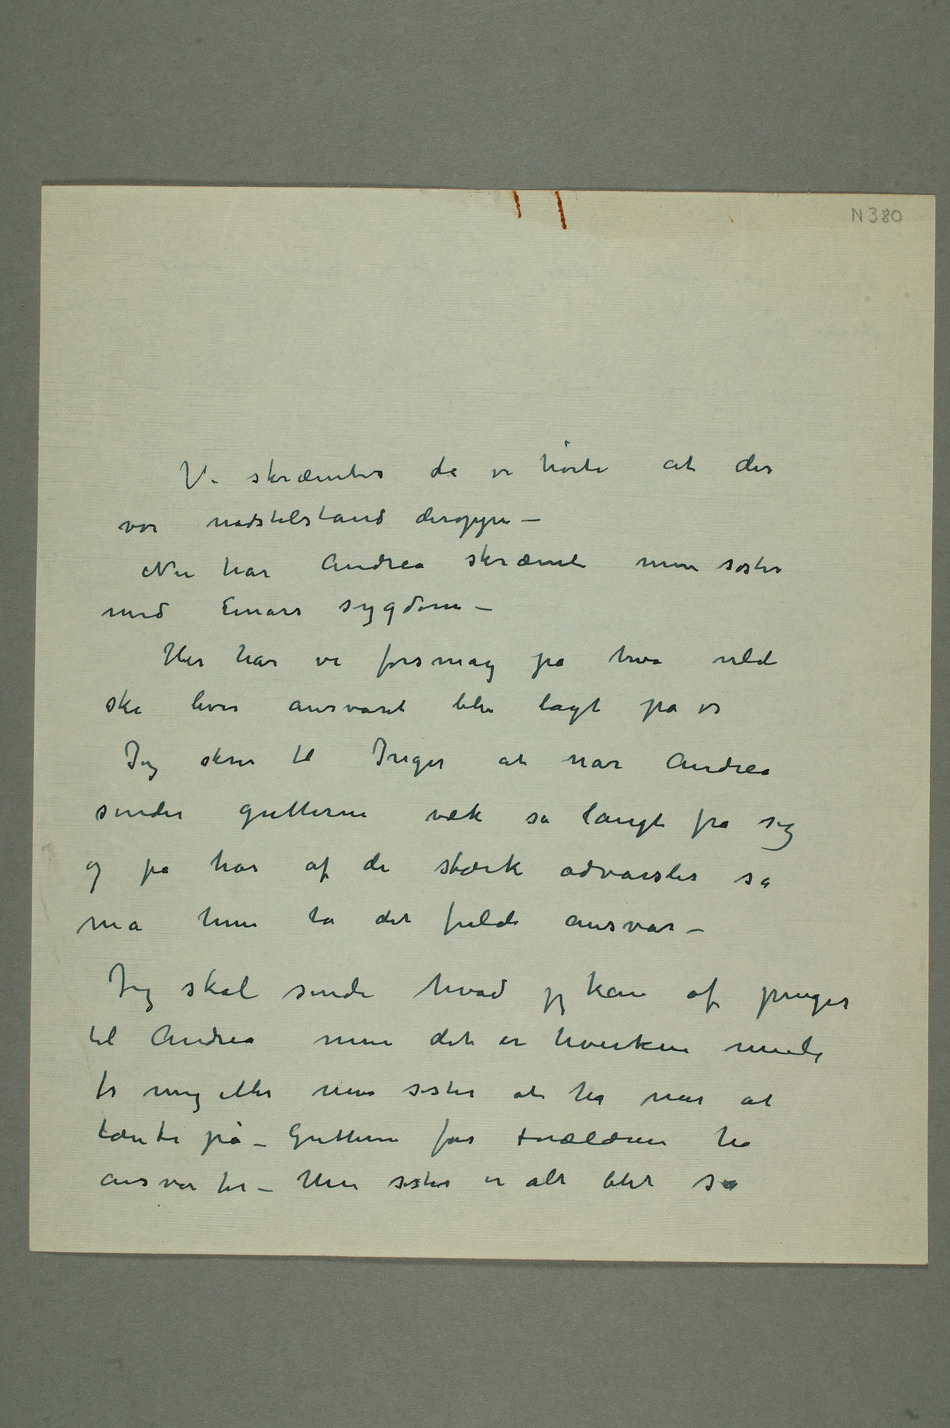 N 380
Vi skræmtes da vi hørte at der
var nødstilstand deroppe –
Nu har Andrea skræmt min søster
med Einars sygdom –
Her har vi forsmag på hva vilde
ske hvis ansvaret blev lagt på os
Jeg skrev til Inger at når Andrea
sender gutterne væk så langt fra sig
og på har af de stærk advarsler så
må hun ta det fulde ansvar –
Jeg skal sende hvad jeg kan af penger
til Andrea men det er hverken
for mig eller min søster at ha mer at
tænke på – Gutterne får forældrene ha
ansvar for – Min søster er alt blit så